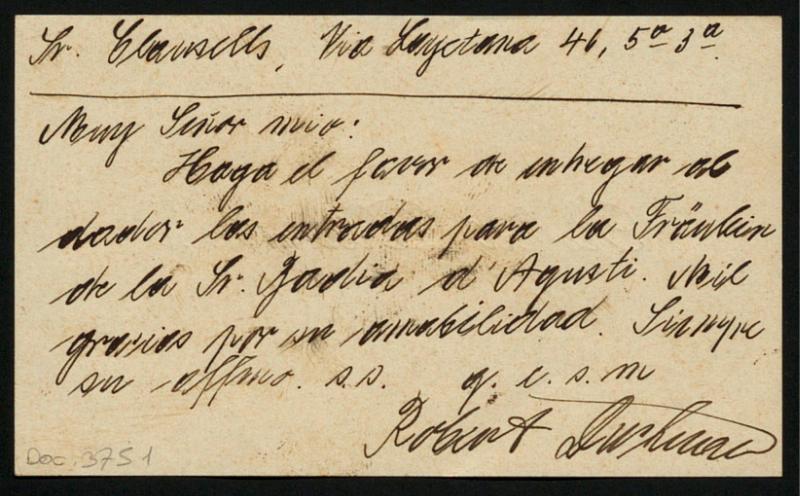 Sr. Clausells, Via Layetana 46, 5º 3ª.
Muy Señor mio:
Haga el favor de entregar al
dador las entradas para la Fräulein
de la Sr. Badia d'Agusti. Mil
gracias por su amabilidad. Siempre
su affmo. s.s. q. e. s. m
Robert
Doc. 3751